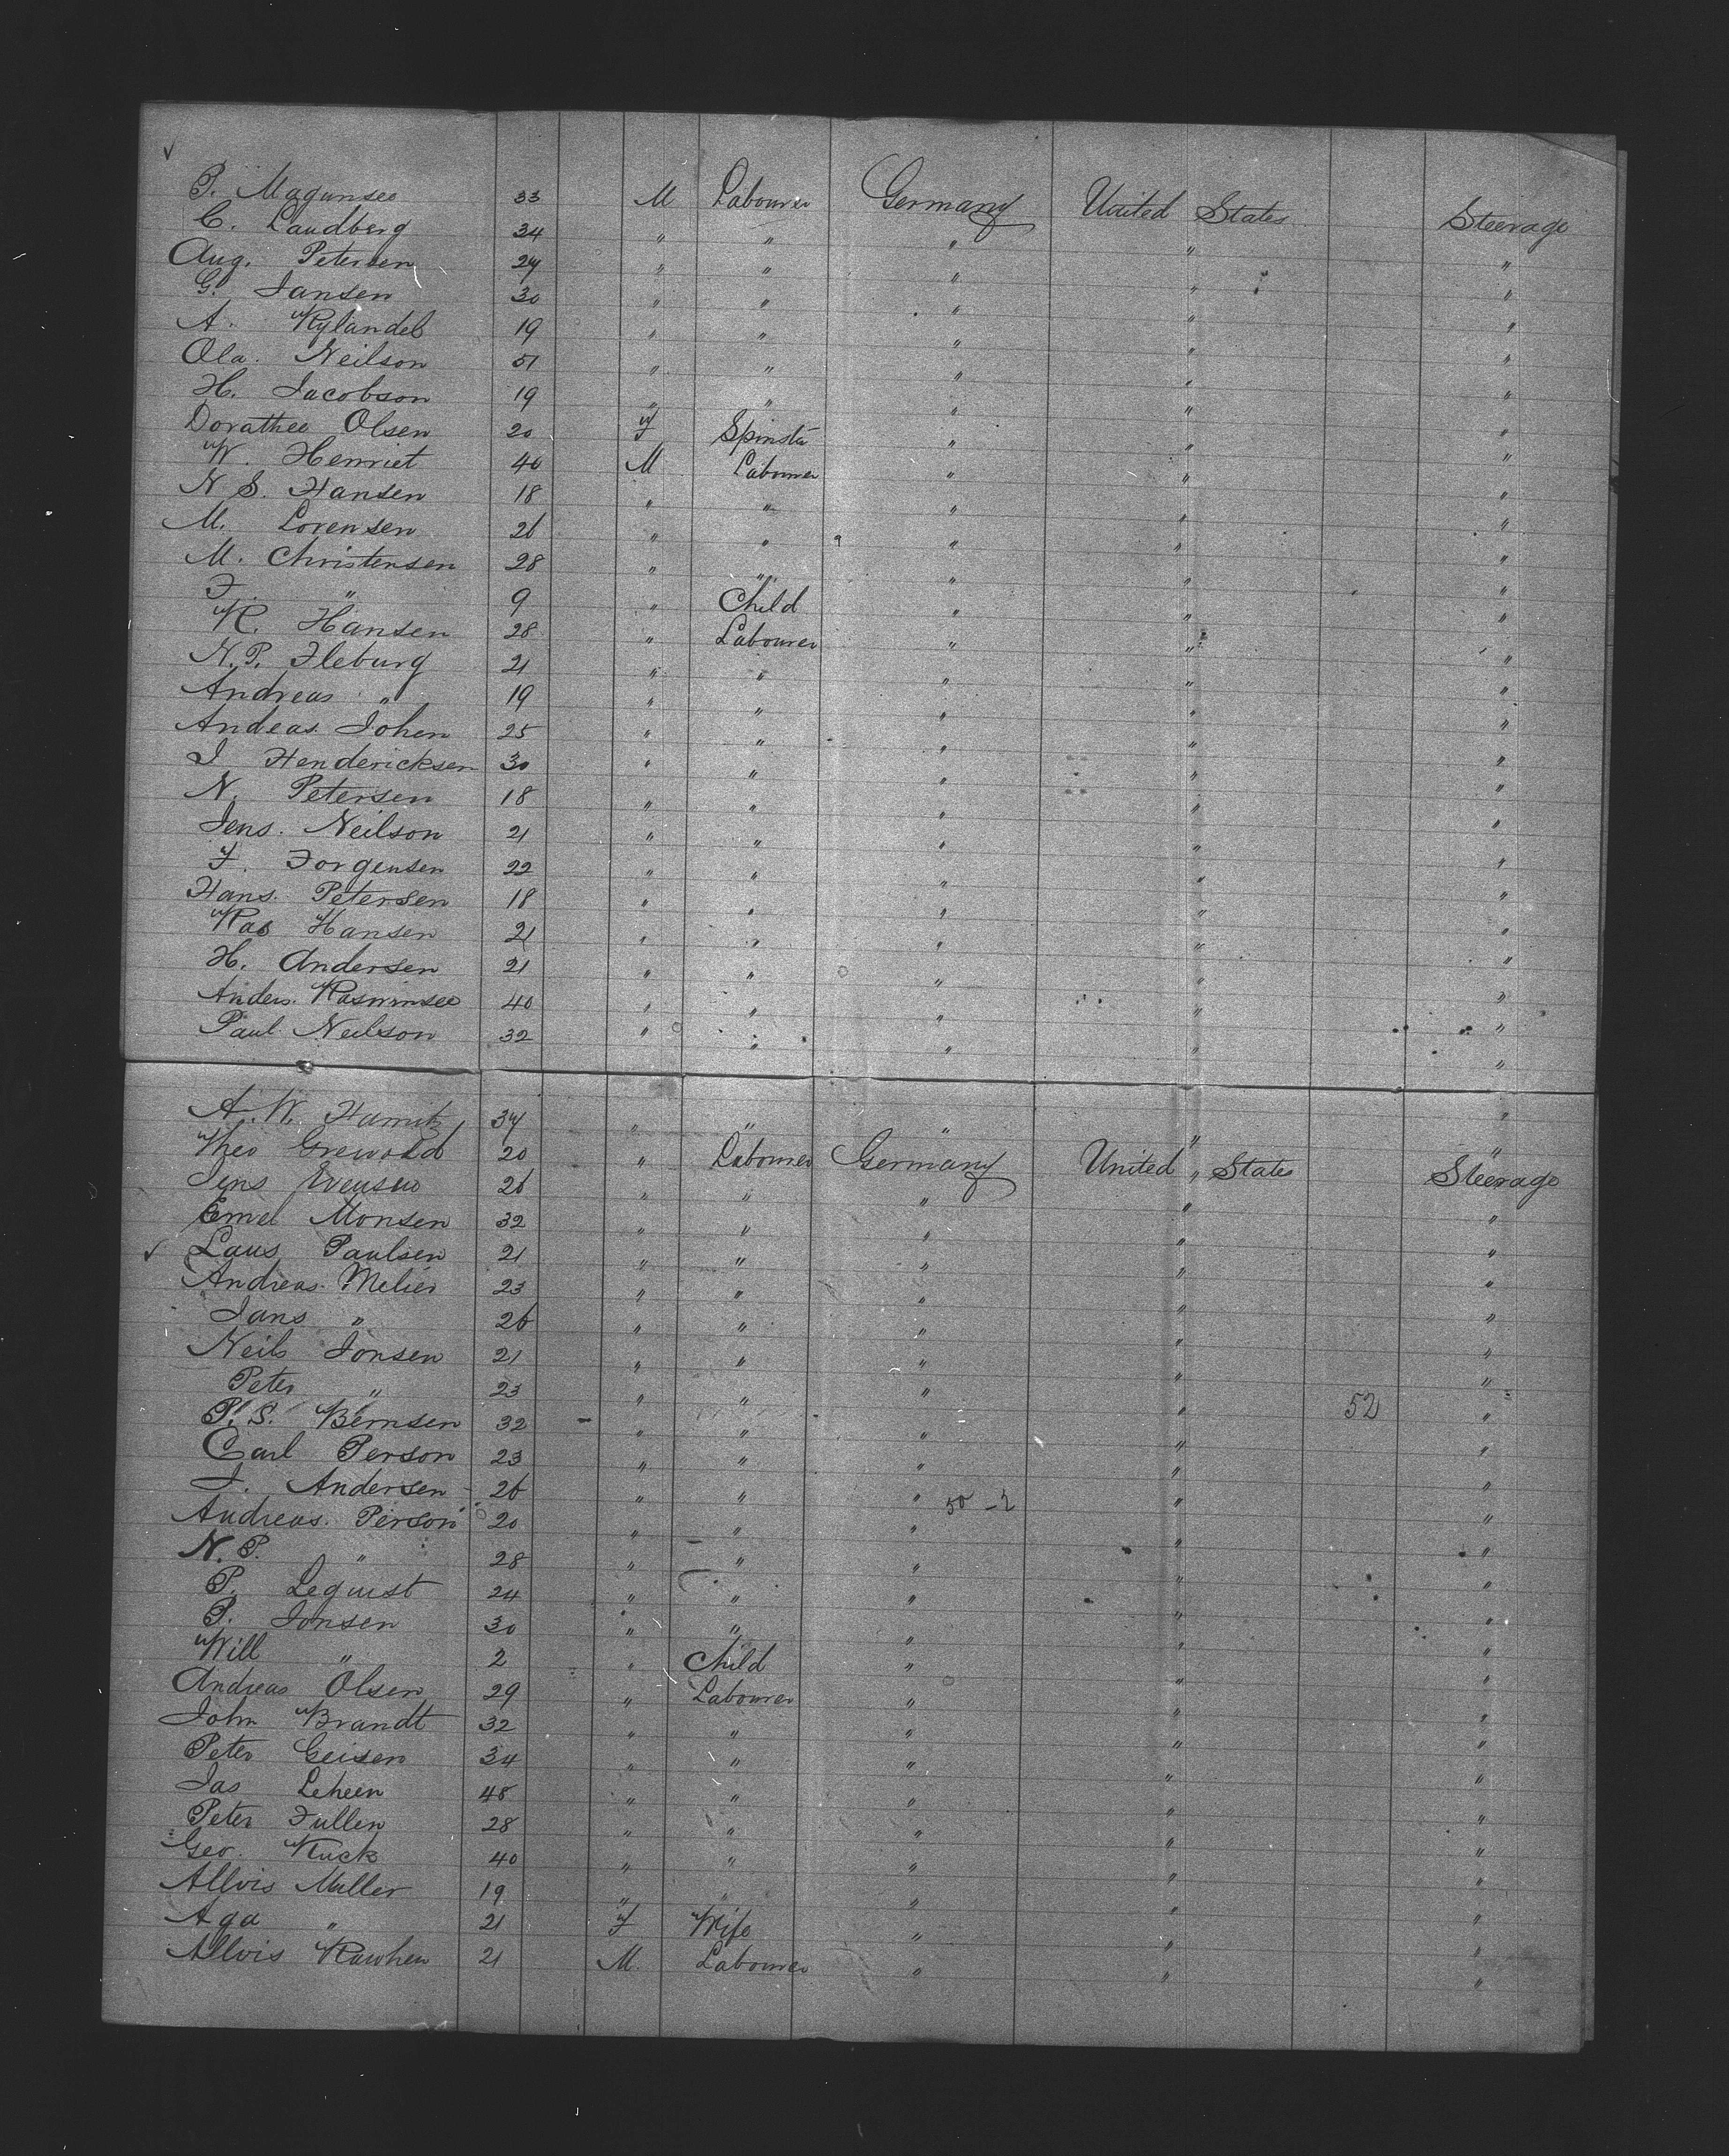 P. Magunsee 33 M Labourer Germany United States Steerage
C. Landberg 34 " " " " "
Aug. Petersen 24 " " " " "
G. Jansen 30 " " " " "
A. Rylandel 19 " " " " "
Ola. Neilson 51 " " " " "
H. Jacobson 19 " " " " "
Dorathee Olsen 20 F Spinstr " " "
W. Henriet 40 M Labourer " " "
N S. Hansen 18 " " " " "
M. Lorensen 26 " " " " "
M. Christensen 28 " " " " "
F. " 9 " Child " " "
R. Hansen 28 " Labourer " " "
N.P. Fleburg 21 " " " " "
Andreas " 19 " " " " "
Andeas. Johen 25 " " " " "
J Hendericksen 30 " " " " "
N. Petersen 18 " " " " "
Jens. Neilson 21 " " " " "
F. Forgensen 22 " " " " "
Hans. Petersen 18 " " " " "
Ras Hansen 21 " " " " "
H. Andersen 21 " " " " "
Anders. Rasmimsee 40 " " " " "
Paul. Neilson 32 " " " " "
A.W. 34 " " " " "
Theo Grewold 20 " Labourer Germany United States Steerage
Jens Evensen 26 " " " " "
Emel Monsen 32 " " " " "
Laus Paulsen 21 " " " " "
Andreas. Melier 23 " " " " "
Jans " 26 " " " " "
Neils Jonsen 21 " " " " "
Peter " 23 " " " " 52 "
P. S. Bernsen 32 " " " " "
Carl Person 23 " " " " "
J. Andersen 26 " " " 50 - 2 " "
Andreas. Person 20 " " " " "
N. P. " 28 " " " " "
P. Lequist 24 " " " " "
P. Jonsen 30 " " " " "
Will " 2 " Child " " "
Andreas Olsen 29 " Labourer " " "
John Brandt 32 " " " " "
Peter Geisen 34 " " " " "
Jas Leheen 48 " " " " "
Peter Fullen 28 " " " " "
Geo. Kuck 40 " " " " "
Allvis Muller 19 " " " " "
Aga " 21 F Wife " " "
Allvis Rawhen 21 M Labourer " " "